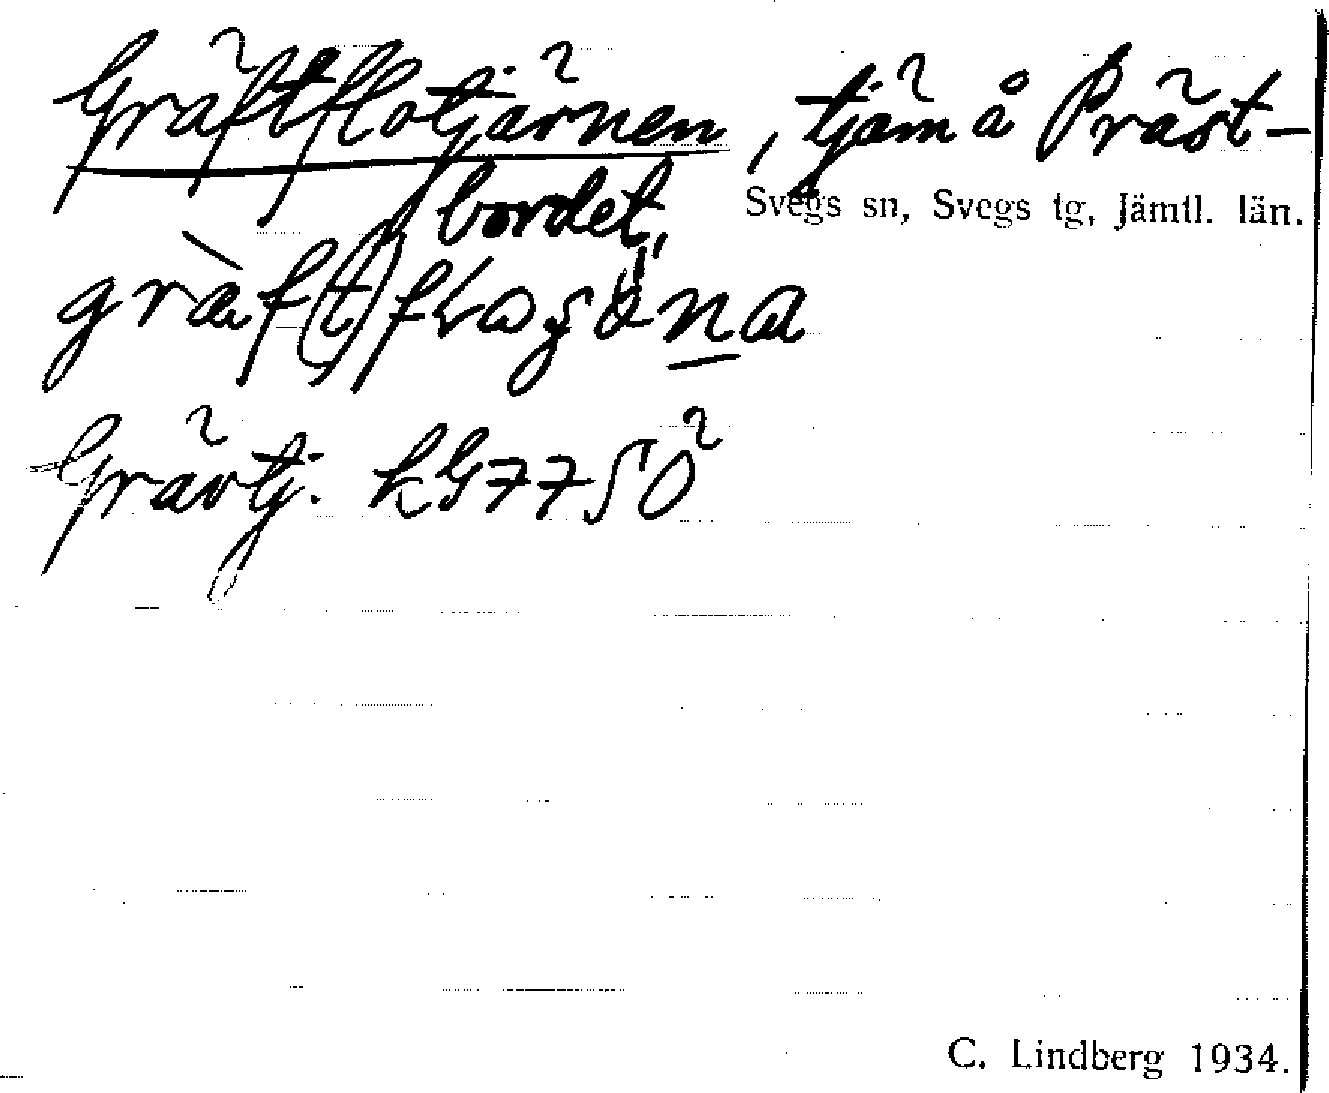 Gräftflotjärnen, tjärn å Präst-
bordet,
Svegs sn, Svegs tg, Jämtl. län.
Grävtj. kG7750
C. Lindberg 1934.